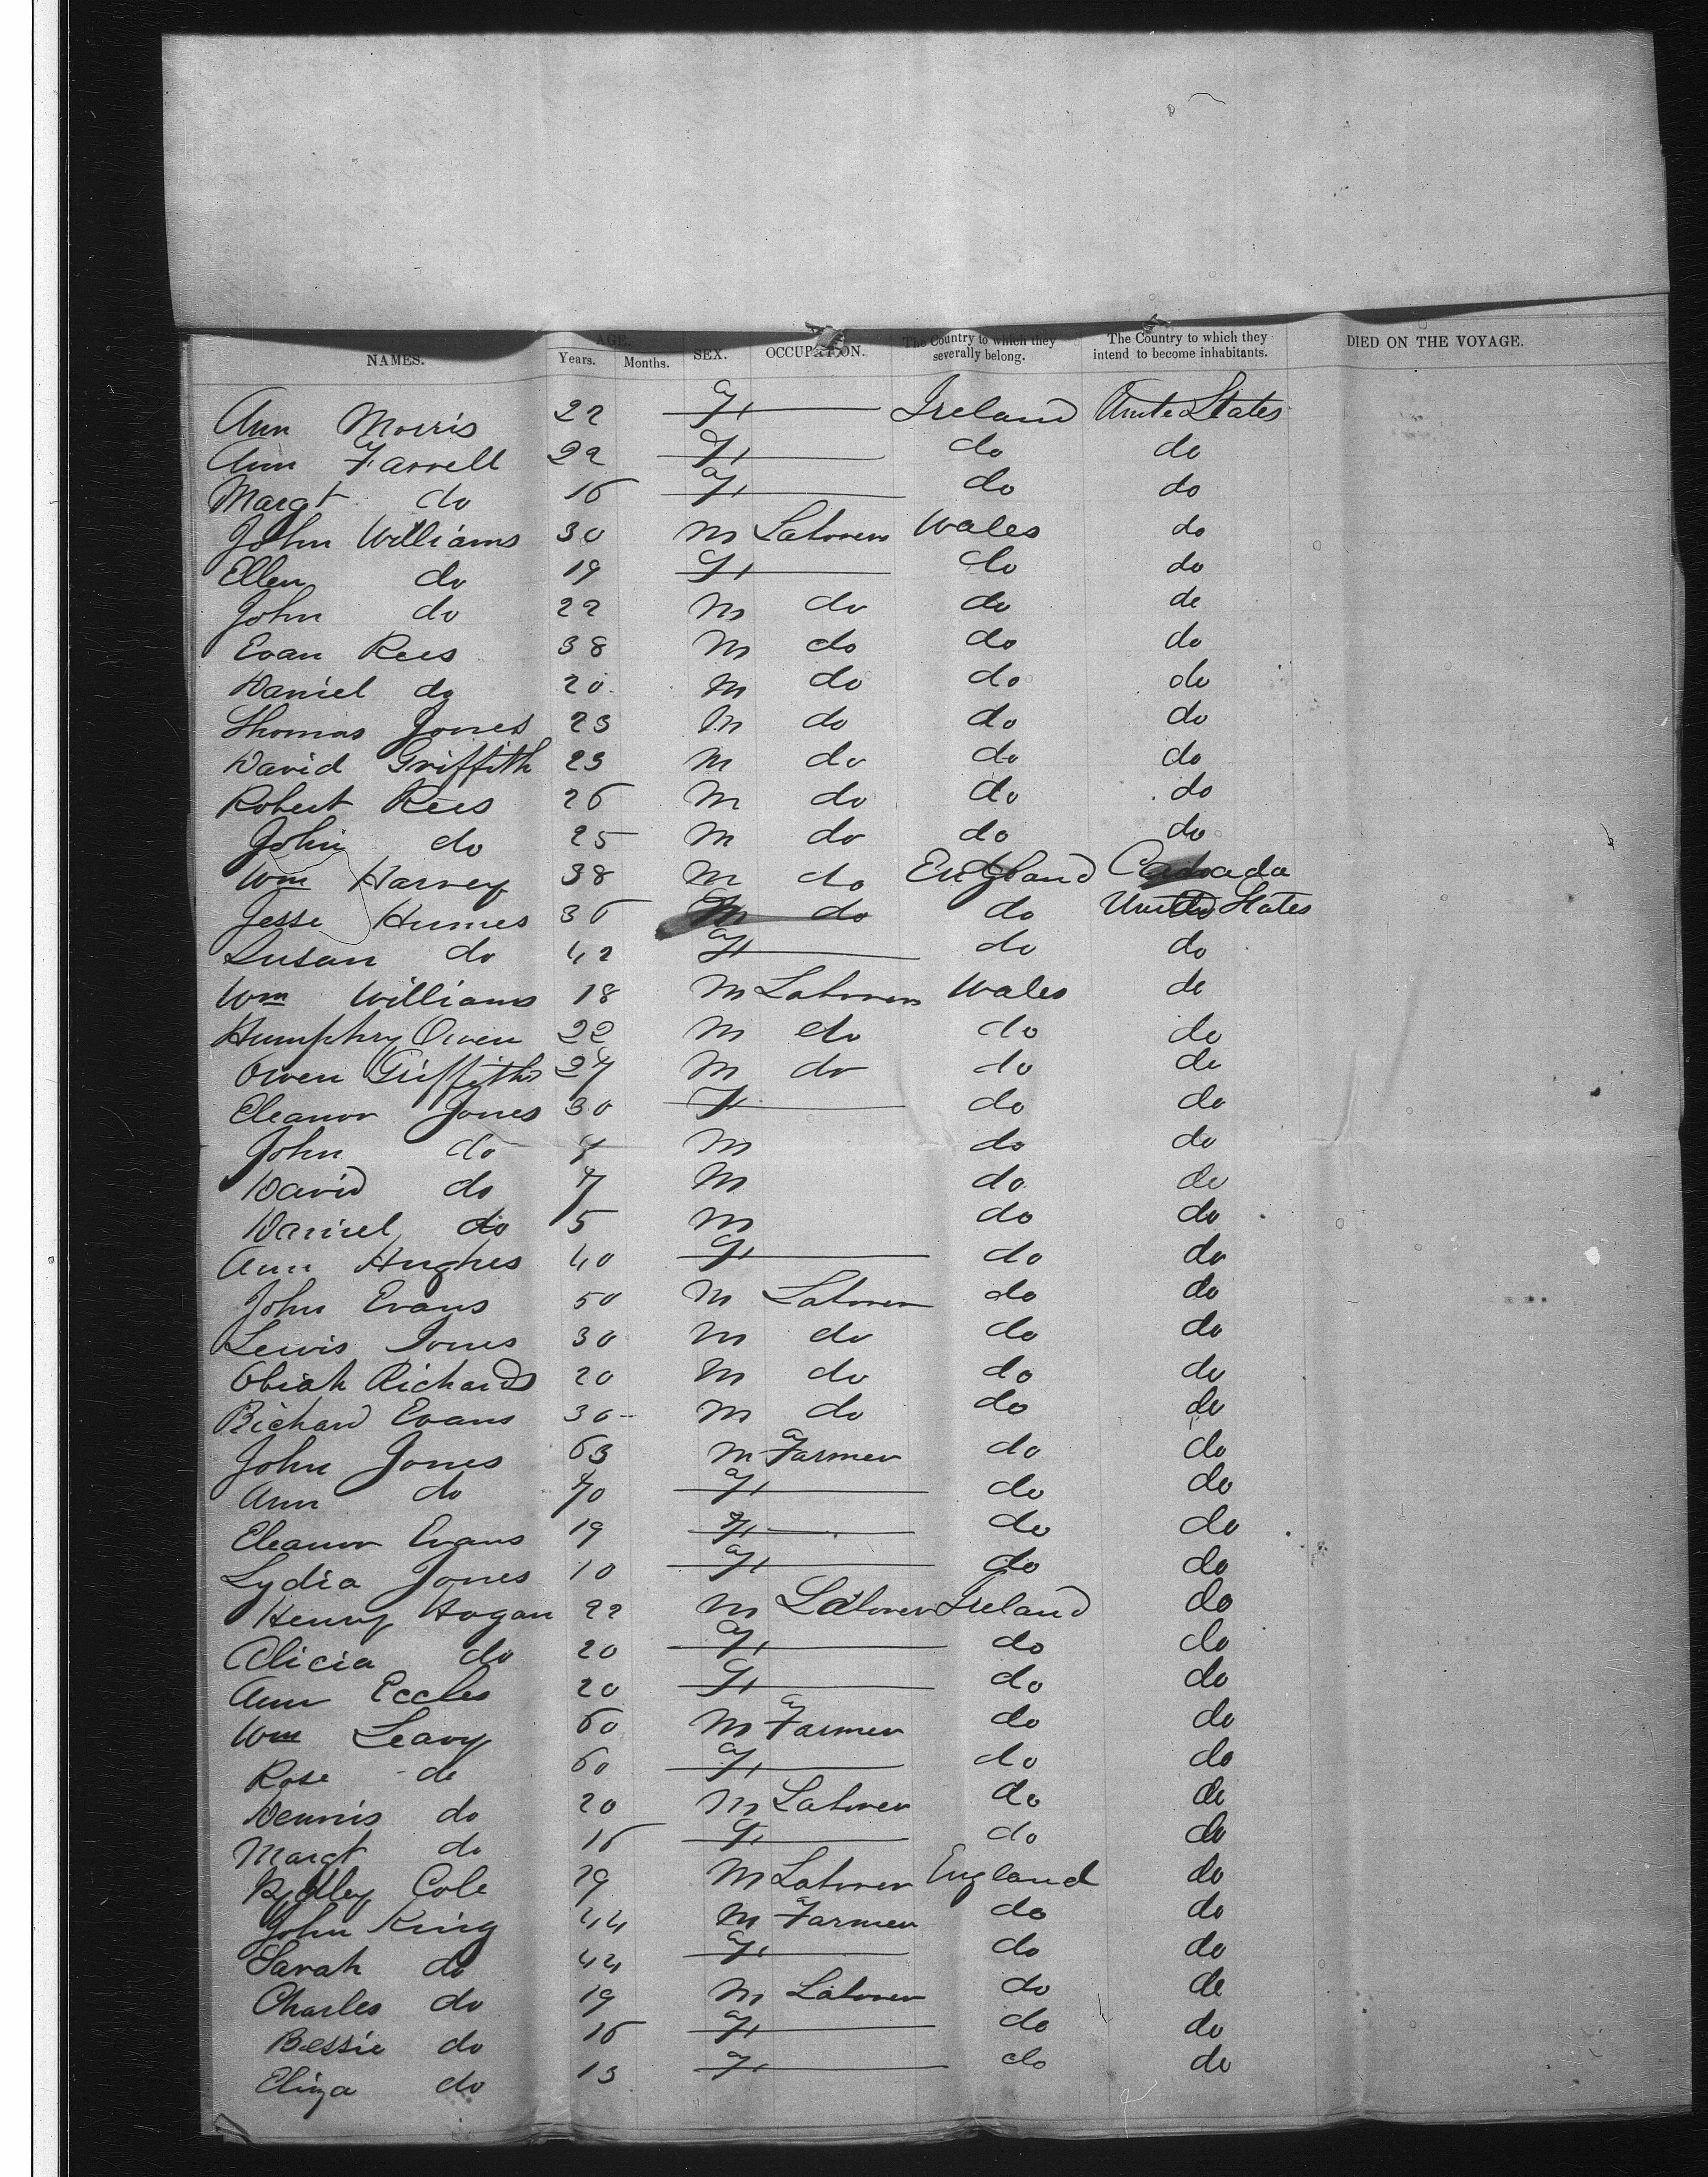 NAMES. AGE. Years. Months. SEX. OCCUPATION. The Country to which they severally belong. The Country to which they intend to become inhabitants. DIED ON THE VOYAGE.
Ann Morris 22 F Ireland United States
Ann Farrell 22 F do do
Margt do 16 F do do
John Williams 30 M Laborer Wales do
Ellen do 19 F do do
John do 22 M do do do
Evan Rees 38 M do do do
Daniel do 20 M do do do
Thomas Jones 23 M do do do
David Griffith 23 M do do do
Robert Rees 26 M do do do
John do 25 M do do do
Wm Harvey 38 M do England Canada
Jesse Humes 36 M do do United States
Susan do 42 F do do
Wm Williams 18 M Laborer Wales do
Humphry Owen 22 M do do do
Owen Griffiths 27 M do do do
Eleanor Jones 30 F do do
John do 9 M do do
David do 7 M do do
Daniel do 5 M do do
Ann Hughes 40 F do do
John Evans 50 M Laborer do do
Lewis Jones 30 M do do do
Obiah Richards 20 M do do do
Richard Evans 30 M do do do
John Jones 63 M Farmer do do
Ann do 70 F do do
Eleanor Evans 19 F do do
Lydia Jones 10 F do do
Henry Hogan 22 M Laborer Ireland do
Alicia do 20 F do do
Ann Eccles 20 F do do
Wm Leavy 60 M Farmer do do
Rose do 60 F do do
Dennis do 20 M Laborer do do
Margt do 16 F do do
Cole 29 M Laborer England do
John King 44 M Farmer do do
Sarah do 44 F do do
Charles do 19 M Laborer do do
Bessie do 16 F do do
Eliza do 13 F do do